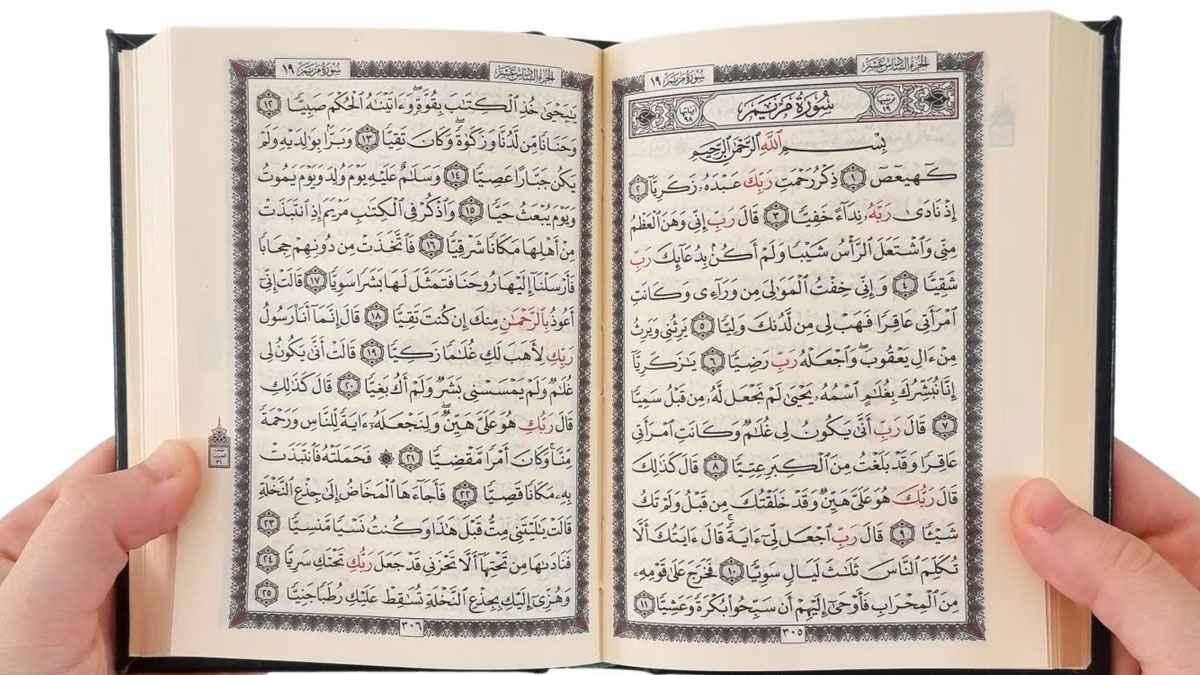 سُورَةُ مَرْيَمَ ١٩
الجزء السادس عشر
سُورَةُ مَرْيَمَ
بِسْمِ ٱللَّهِ ٱلرَّحْمَٰنِ ٱلرَّحِيمِ
كٓهيعٓصٓ ١ ذِكْرُ رَحْمَتِ رَبِّكَ عَبْدَهُۥ زَكَرِيَّآ ٢
إِذْ نَادَىٰ رَبَّهُۥ نِدَآءً خَفِيًّا ٣ قَالَ رَبِّ إِنِّي وَهَنَ ٱلْعَظْمُ
مِنِّي وَٱشْتَعَلَ ٱلرَّأْسُ شَيْبًا وَلَمْ أَكُنۢ بِدُعَآئِكَ رَبِّ
شَقِيًّا ٤ وَإِنِّي خِفْتُ ٱلْمَوَٰلِيَ مِن وَرَآءِي وَكَانَتِ
ٱمْرَأَتِي عَاقِرًا فَهَبْ لِي مِن لَّدُنكَ وَلِيًّا ٥ يَرِثُنِي وَيَرِثُ
مِنْ ءَالِ يَعْقُوبَ وَٱجْعَلْهُ رَبِّ رَضِيًّا ٦ يَٰزَكَرِيَّآ
إِنَّا نُبَشِّرُكَ بِغُلَٰمٍ ٱسْمُهُۥ يَحْيَىٰ لَمْ نَجْعَل لَّهُۥ مِن قَبْلُ سَمِيًّا
٧ قَالَ رَبِّ أَنَّىٰ يَكُونُ لِي غُلَٰمٌ وَكَانَتِ ٱمْرَأَتِي
عَاقِرًا وَقَدْ بَلَغْتُ مِنَ ٱلْكِبَرِ عِتِيًّا ٨ قَالَ كَذَٰلِكَ
قَالَ رَبُّكَ هُوَ عَلَيَّ هَيِّنٌ وَقَدْ خَلَقْتُكَ مِن قَبْلُ وَلَمْ تَكُ
شَيْـًٔا ٩ قَالَ رَبِّ ٱجْعَل لِّيٓ ءَايَةً قَالَ ءَايَتُكَ أَلَّا
تُكَلِّمَ ٱلنَّاسَ ثَلَٰثَ لَيَالٍ سَوِيًّا ١٠ فَخَرَجَ عَلَىٰ قَوْمِهِۦ
مِنَ ٱلْمِحْرَابِ فَأَوْحَىٰٓ إِلَيْهِمْ أَن سَبِّحُوا۟ بُكْرَةً وَعَشِيًّا ١١
٣٠٥
سُورَةُ مَرْيَمَ ١٩
الجزء السادس عشر
يَٰيَحْيَىٰ خُذِ ٱلْكِتَٰبَ بِقُوَّةٍ وَءَاتَيْنَٰهُ ٱلْحُكْمَ صَبِيًّا ١٢
وَحَنَانًا مِّن لَّدُنَّا وَزَكَوٰةً وَكَانَ تَقِيًّا ١٣ وَبَرًّۢا بِوَٰلِدَيْهِ وَلَمْ
يَكُن جَبَّارًا عَصِيًّا ١٤ وَسَلَٰمٌ عَلَيْهِ يَوْمَ وُلِدَ وَيَوْمَ يَمُوتُ
وَيَوْمَ يُبْعَثُ حَيًّا ١٥ وَٱذْكُرْ فِي ٱلْكِتَٰبِ مَرْيَمَ إِذِ ٱنتَبَذَتْ
مِنْ أَهْلِهَا مَكَانًا شَرْقِيًّا ١٦ فَٱتَّخَذَتْ مِن دُونِهِمْ حِجَابًا
فَأَرْسَلْنَآ إِلَيْهَا رُوحَنَا فَتَمَثَّلَ لَهَا بَشَرًا سَوِيًّا ١٧ قَالَتْ إِنِّيٓ
أَعُوذُ بِٱلرَّحْمَٰنِ مِنكَ إِن كُنتَ تَقِيًّا ١٨ قَالَ إِنَّمَآ أَنَا۠ رَسُولُ
رَبِّكِ لِأَهَبَ لَكِ غُلَٰمًا زَكِيًّا ١٩ قَالَتْ أَنَّىٰ يَكُونُ لِي
غُلَٰمٌ وَلَمْ يَمْسَسْنِي بَشَرٌ وَلَمْ أَكُ بَغِيًّا ٢٠ قَالَ كَذَٰلِكِ
قَالَ رَبُّكِ هُوَ عَلَيَّ هَيِّنٌ وَلِنَجْعَلَهُۥٓ ءَايَةً لِّلنَّاسِ وَرَحْمَةً
مِّنَّا وَكَانَ أَمْرًا مَّقْضِيًّا ٢١ ۞ فَحَمَلَتْهُ فَٱنتَبَذَتْ
بِهِۦ مَكَانًا قَصِيًّا ٢٢ فَأَجَآءَهَا ٱلْمَخَاضُ إِلَىٰ جِذْعِ ٱلنَّخْلَةِ
قَالَتْ يَٰلَيْتَنِي مِتُّ قَبْلَ هَٰذَا وَكُنتُ نَسْيًا مَّنسِيًّا ٢٣
فَنَادَىٰهَا مِن تَحْتِهَآ أَلَّا تَحْزَنِي قَدْ جَعَلَ رَبُّكِ تَحْتَكِ سَرِيًّا ٢٤
وَهُزِّيٓ إِلَيْكِ بِجِذْعِ ٱلنَّخْلَةِ تُسَٰقِطْ عَلَيْكِ رُطَبًا جَنِيًّا ٢٥
٣٠٦